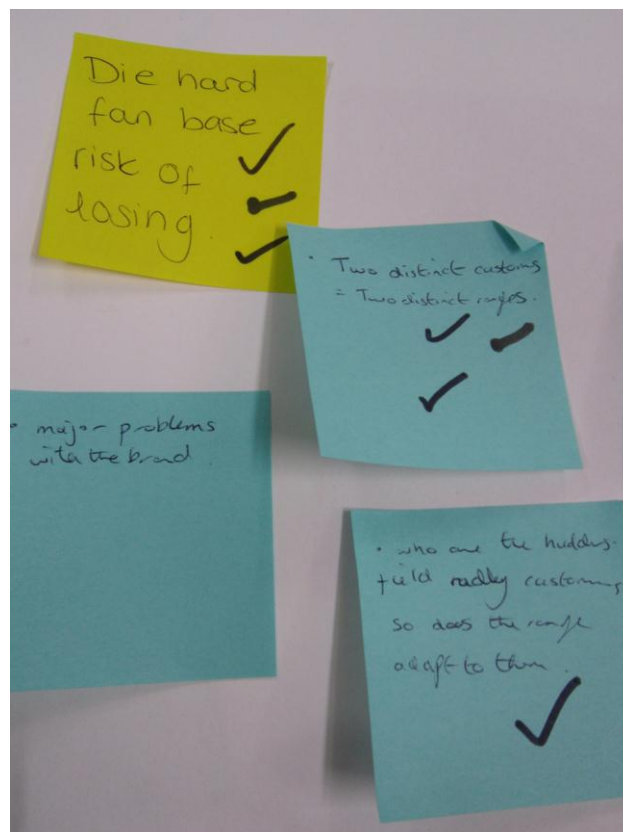 Die hard
fan base
risk of
losing.
• Two distinct customs
= Two distinct ranges.
• major problems
with the brand.
• who are the hudders-
field radley customers,
so does the range
adapt to them.